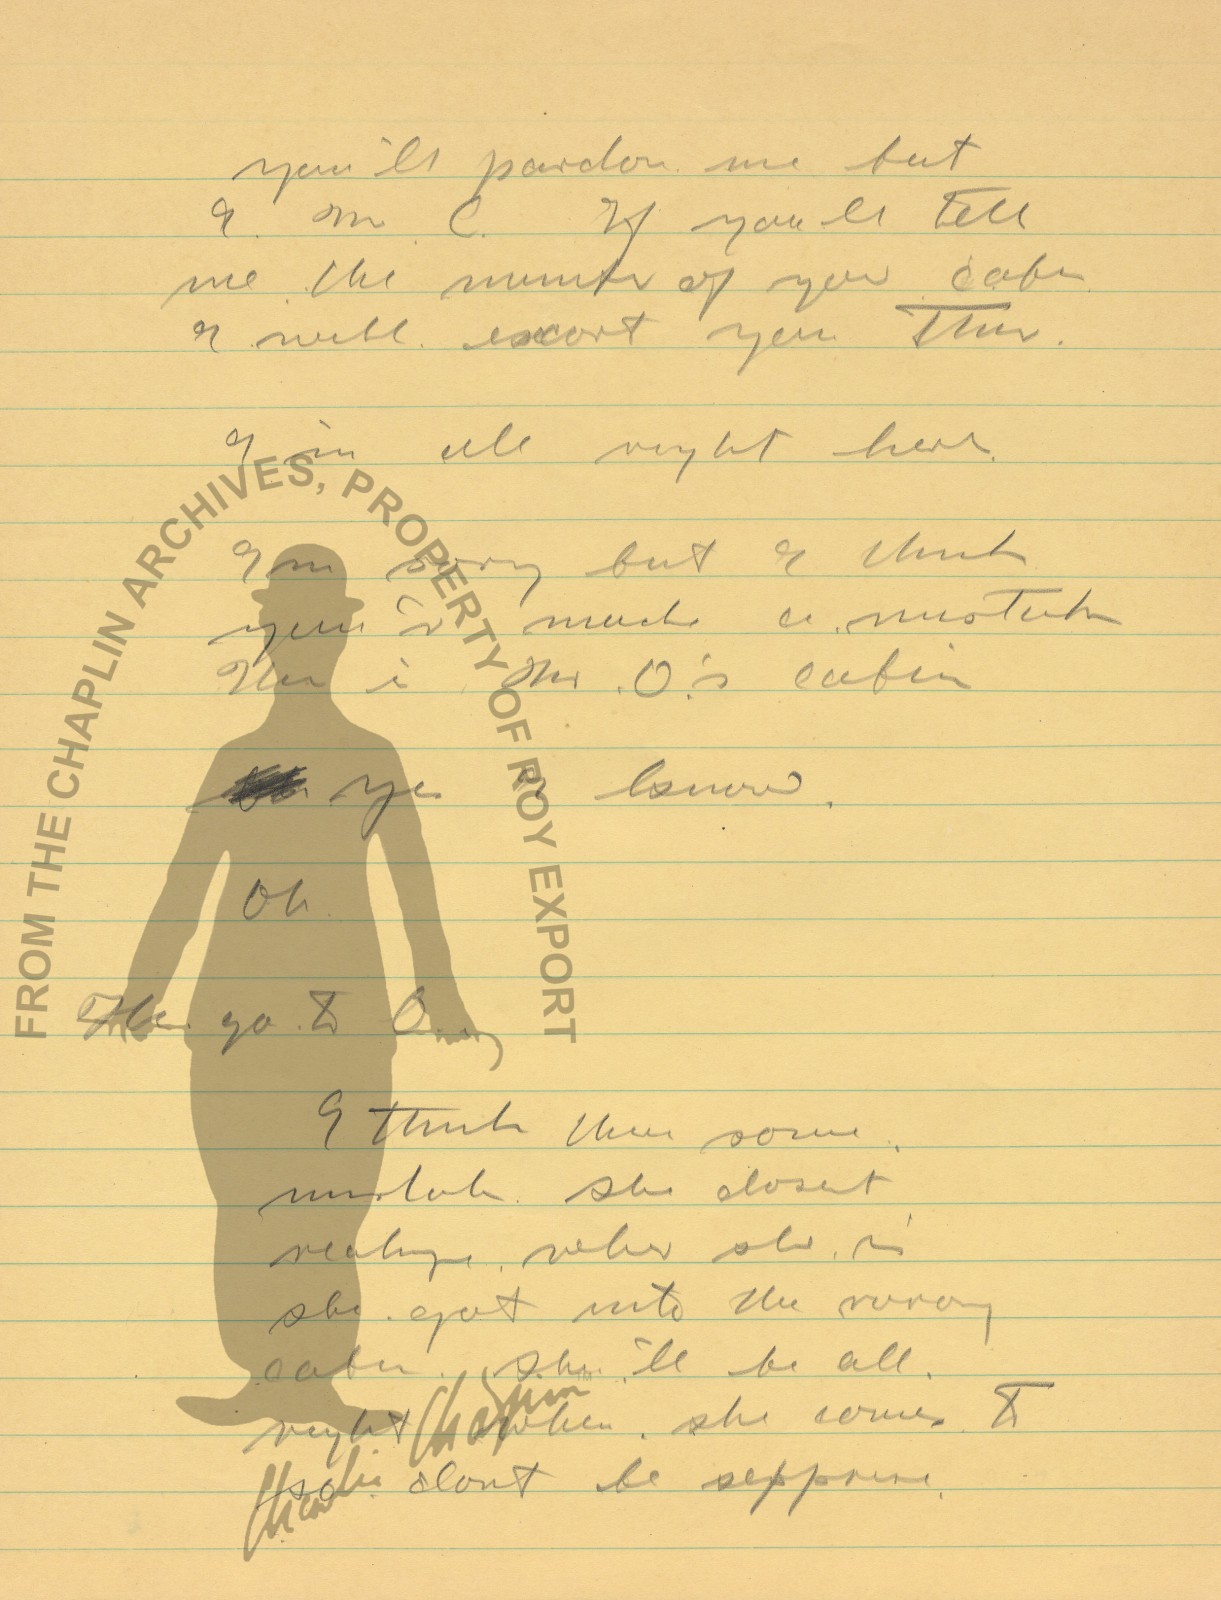 you'll pardon me but
I. Mr C. If you'll tell
me the number of your cabin
I will escort you there.
I'm all right here.
I'm sorry but I think
you've made a mistake
This is Mr. O.'s cabin
yes I know.
Oh.
Then go to
I think there some
mistake. She dosent
realize where she is
she got into the wrong
cabin. She'll be all
right when she comes to
so dont be
FROM THE CHAPLIN ARCHIVES, PROPERTY OF ROY EXPORT
Charlie Chaplin
TM